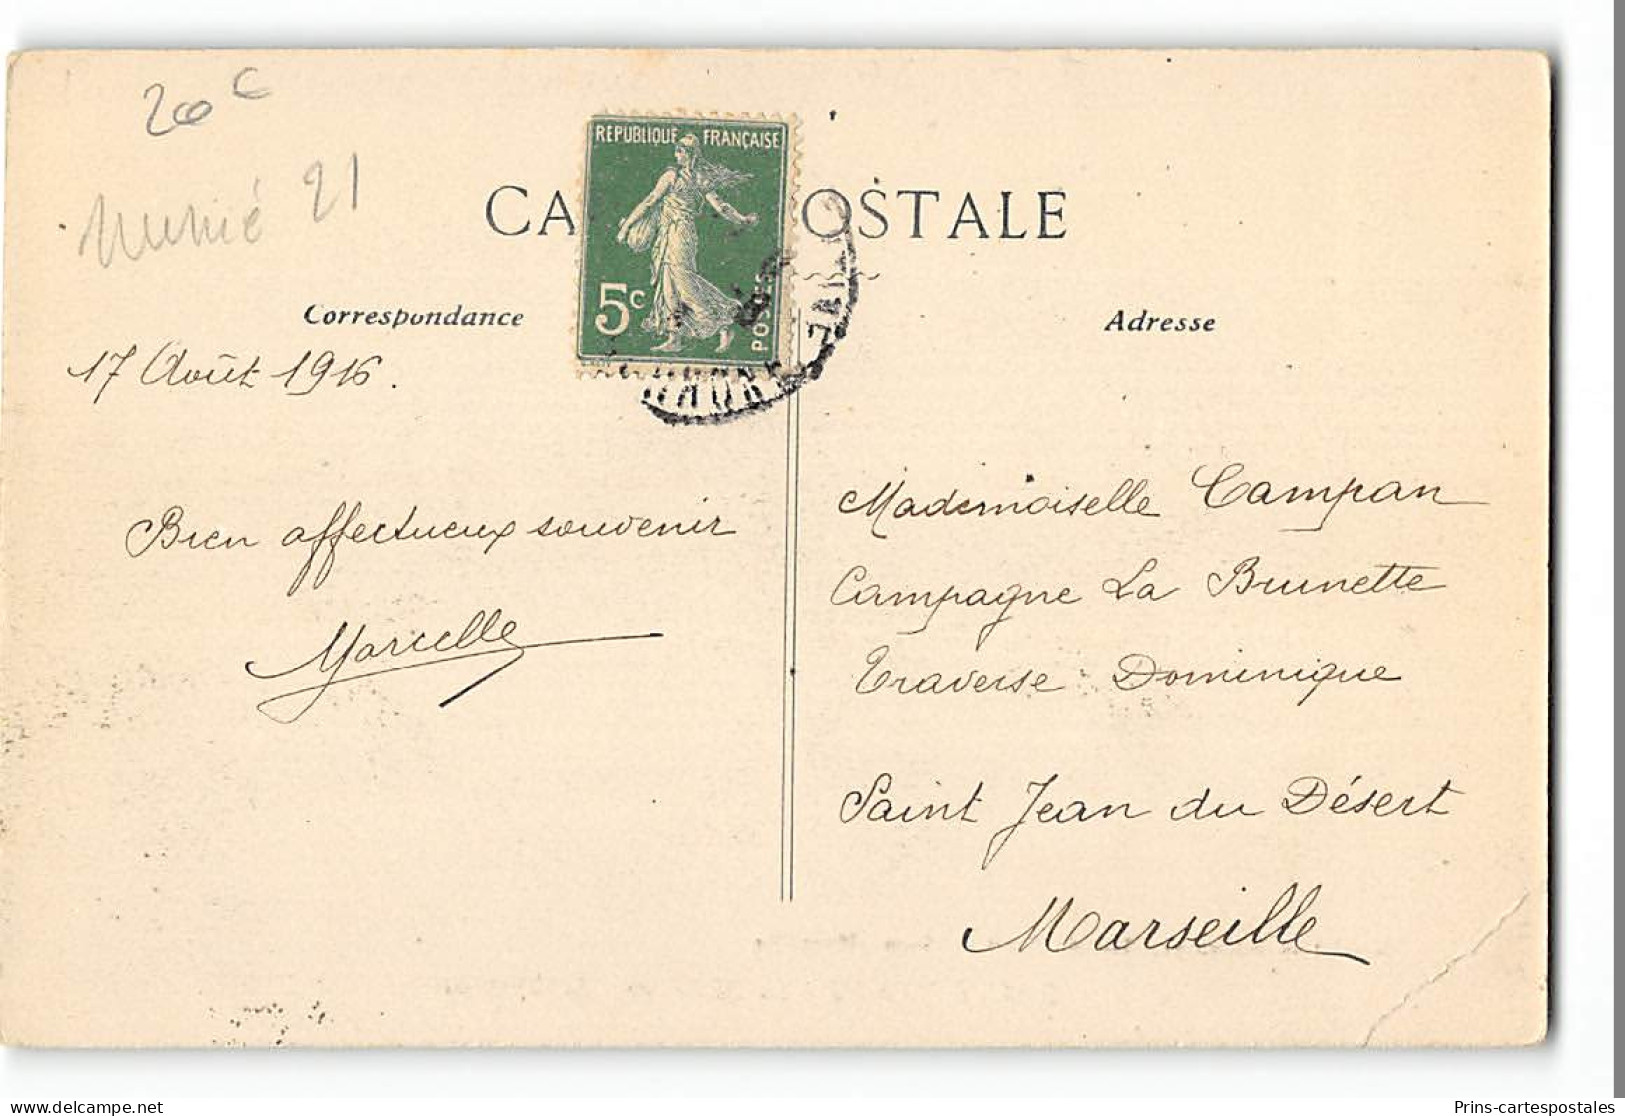 20 c
21
REPUBLIQUE FRANÇAISE
5c
POSTES
CA OSTALE
Correspondance
Adresse
17 Août 1916.
Bien affectueux souvenir
Marcelle
Mademoiselle Campan
Campagne La Brunette
Traverse Dominique
Saint Jean du Désert
Marseille
delcampe.net
Prins-cartespostales